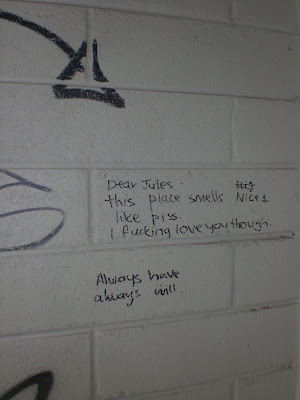 Dear Jules.
this place smells
like piss.
I fucking love you though.
Nice 1
Always have
always will.